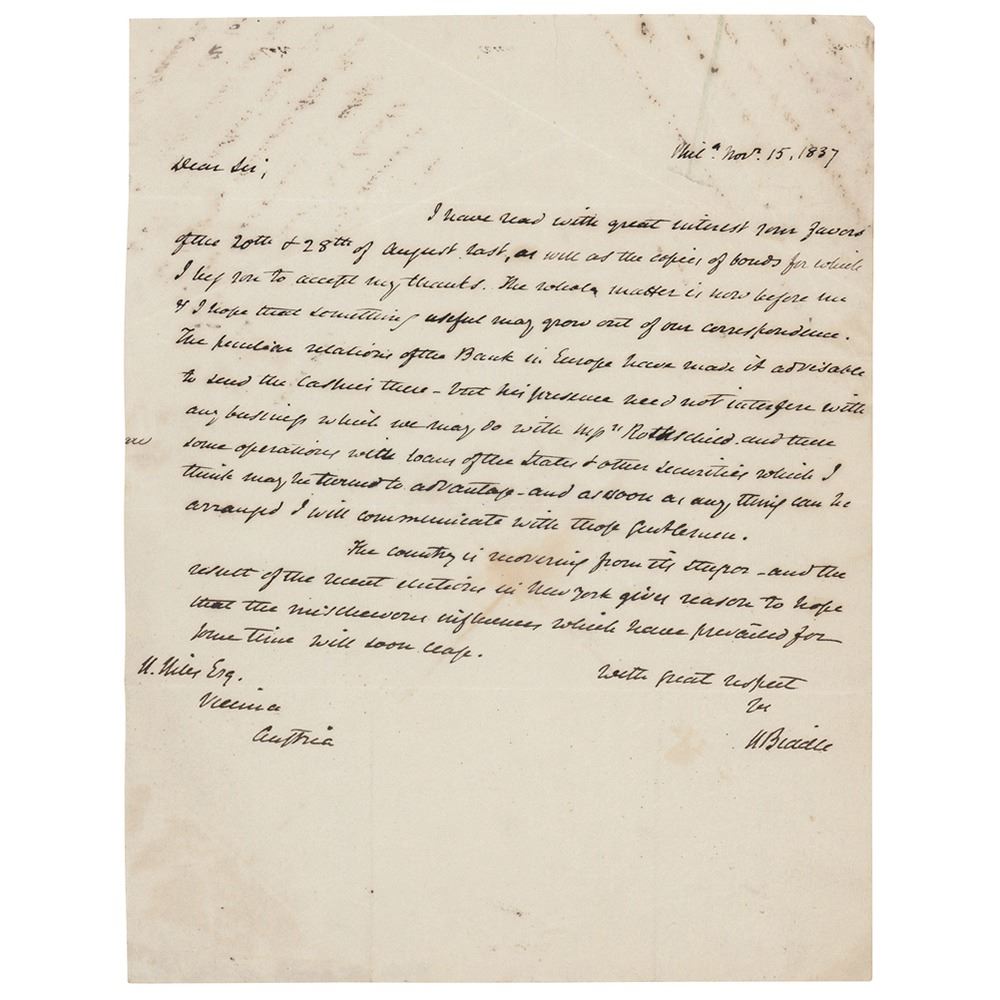 Phil.ª Nov.r 15, 1837
Dear Sir,
I have read with great interest your favors
of the 20th & 28th of August last, as well as the copies of bonds for which
I beg you to accept my thanks. The whole matter is now before me
& I hope that something useful may grow out of our correspondence.
The peculiar relations of the Bank in Europe have made it advisable
to send the Cashier there - but his presence need not interfere with
any business which we may do with Mess.rs Rothschild. and there are
some operations with loans of the States & other securities which I
think may be turned to advantage - and as soon as any thing can be
arranged I will communicate with those Gentlemen.
The country is recovering from its stupor - and the
result of the recent elections in New York gives reason to hope
that the mischievous influences which have prevailed for
some time will soon cease.
With great respect
Yrs
N Biddle
N. Niles Esq.
Vienna
Austria